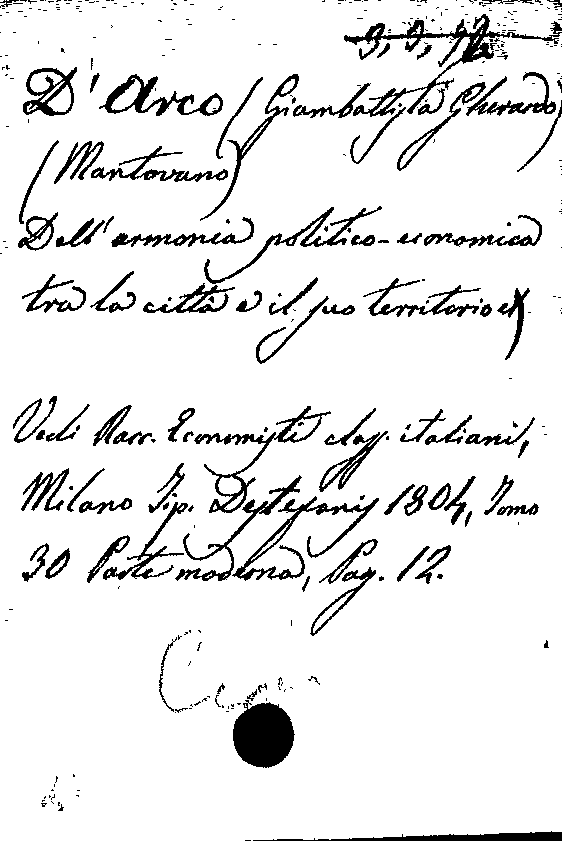 D'Arco (Giambattista Gherardo)
(Mantovano)
Dell'armonia politico-economica
tra la città e il suo territorio
Vedi Racc. Economisti class. italiani,
Milano Tip. Destefanis 1804, Tomo
30 Parte moderna, Pag. 12.